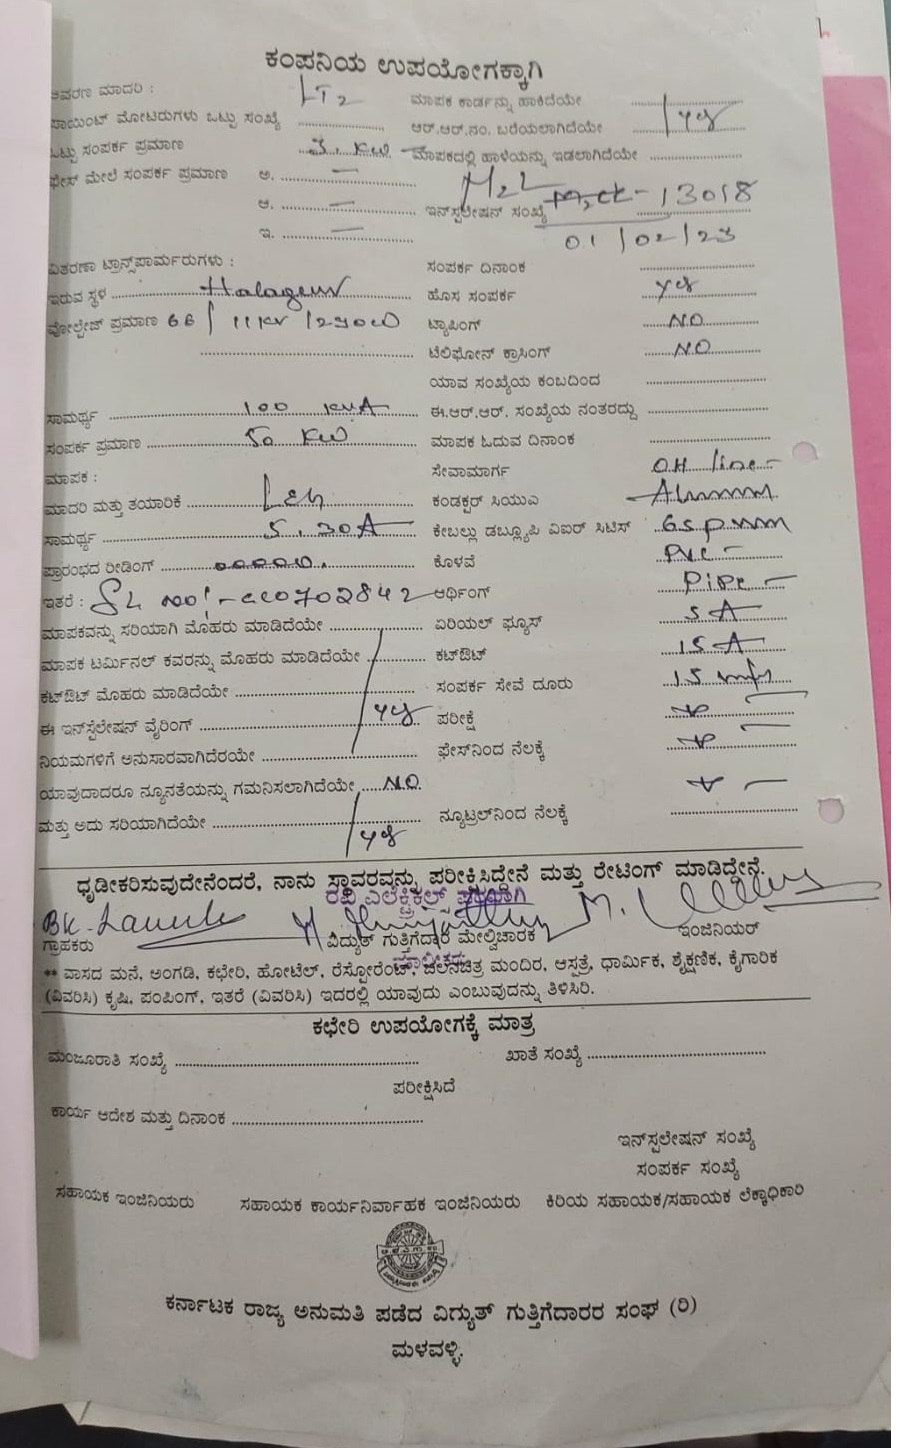 ಕಂಪನಿಯ ಉಪಯೋಗಕ್ಕಾಗಿ
ಆವರಣ ಮಾದರಿ : LT2 ಮಾಪಕ ಕಾರ್ಡನ್ನು ಹಾಕಿದೆಯೇ
ಪಾಯಿಂಟ್ ಮೋಟರುಗಳು ಒಟ್ಟು ಸಂಖ್ಯೆ ಆರ್.ಆರ್.ನಂ. ಬರೆಯಲಾಗಿದೆಯೇ yes
ಒಟ್ಟು ಸಂಪರ್ಕ ಪ್ರಮಾಣ 3. KW ಮಾಪಕದಲ್ಲಿ ಹಾಳೆಯನ್ನು ಇಡಲಾಗಿದೆಯೇ
ಫೇಸ್ ಮೇಲೆ ಸಂಪರ್ಕ ಪ್ರಮಾಣ ಅ. —
ಆ. — ಇನ್‌ಸ್ಟಲೇಷನ್ ಸಂಖ್ಯೆ 13018
ಇ. — 01/02/23
ವಿತರಣಾ ಟ್ರಾನ್ಸ್‌ಫಾರ್ಮರುಗಳು : ಸಂಪರ್ಕ ದಿನಾಂಕ
ಇರುವ ಸ್ಥಳ Halagur ಹೊಸ ಸಂಪರ್ಕ yes
ವೋಲ್ಟೇಜ್ ಪ್ರಮಾಣ 66 / 11 KV / ಟ್ಯಾಪಿಂಗ್ NO
ಟೆಲಿಫೋನ್ ಕ್ರಾಸಿಂಗ್ NO
ಯಾವ ಸಂಖ್ಯೆಯ ಕಂಬದಿಂದ
ಸಾಮರ್ಥ್ಯ 100 KVA ಈ.ಆರ್.ಆರ್. ಸಂಖ್ಯೆಯ ನಂತರದ್ದು
ಸಂಪರ್ಕ ಪ್ರಮಾಣ 50 KW ಮಾಪಕ ಓದುವ ದಿನಾಂಕ
ಮಾಪಕ : ಸೇವಾಮಾರ್ಗ OH line
ಮಾದರಿ ಮತ್ತು ತಯಾರಿಕೆ ಕಂಡಕ್ಟರ್ ಸಿಯುಎ
ಸಾಮರ್ಥ್ಯ 5.30A ಕೇಬಲ್ಲು ಡಬ್ಲ್ಯೂಪಿ ವಿಐಆರ್ ಸಿಟಿಸ್
ಪ್ರಾರಂಭದ ರೀಡಿಂಗ್ ಕೊಳವೆ PVC
ಇತರೆ : SL NO:- ಆರ್ಥಿಂಗ್ Pipe
ಮಾಪಕವನ್ನು ಸರಿಯಾಗಿ ಮೊಹರು ಮಾಡಿದೆಯೇ ಏರಿಯಲ್ ಫ್ಯೂಸ್ 5 A
ಮಾಪಕ ಟರ್ಮಿನಲ್ ಕವರನ್ನು ಮೊಹರು ಮಾಡಿದೆಯೇ ಕಟ್‌ಔಟ್ 15 A
ಕಟ್‌ಔಟ್ ಮೊಹರು ಮಾಡಿದೆಯೇ ಸಂಪರ್ಕ ಸೇವೆ ದೂರು 15
ಈ ಇನ್‌ಸ್ಟಲೇಷನ್ ವೈರಿಂಗ್ yes ಪರೀಕ್ಷೆ
ನಿಯಮಗಳಿಗೆ ಅನುಸಾರವಾಗಿದೆರಯೇ ಫೇಸ್‌ನಿಂದ ನೆಲಕ್ಕೆ
ಯಾವುದಾದರೂ ನ್ಯೂನತೆಯನ್ನು ಗಮನಿಸಲಾಗಿದೆಯೇ NO.
ಮತ್ತು ಅದು ಸರಿಯಾಗಿದೆಯೇ yes ನ್ಯೂಟ್ರಲ್‌ನಿಂದ ನೆಲಕ್ಕೆ
ಧೃಡೀಕರಿಸುವುದೇನೆಂದರೆ, ನಾನು ಸ್ಥಾವರವನ್ನು ಪರೀಕ್ಷಿಸಿದ್ದೇನೆ ಮತ್ತು ರೇಟಿಂಗ್ ಮಾಡಿದ್ದೇನೆ.
ರವಿ ಎಲೆಕ್ಟ್ರಿಕಲ್ಸ್
ಗ್ರಾಹಕರು ವಿದ್ಯುತ್ ಗುತ್ತಿಗೆದಾರ ಮೇಲ್ವಿಚಾರಕ ಇಂಜಿನಿಯರ್
** ವಾಸದ ಮನೆ, ಅಂಗಡಿ, ಕಛೇರಿ, ಹೋಟೆಲ್, ರೆಸ್ಟೋರೆಂಟ್, ಚಲನಚಿತ್ರ ಮಂದಿರ, ಆಸ್ಪತ್ರೆ, ಧಾರ್ಮಿಕ, ಶೈಕ್ಷಣಿಕ, ಕೈಗಾರಿಕ
(ವಿವರಿಸಿ) ಕೃಷಿ, ಪಂಪಿಂಗ್, ಇತರೆ (ವಿವರಿಸಿ) ಇದರಲ್ಲಿ ಯಾವುದು ಎಂಬುವುದನ್ನು ತಿಳಿಸಿರಿ.
ಕಛೇರಿ ಉಪಯೋಗಕ್ಕೆ ಮಾತ್ರ
ಮಂಜೂರಾತಿ ಸಂಖ್ಯೆ ಖಾತೆ ಸಂಖ್ಯೆ
ಪರೀಕ್ಷಿಸಿದೆ
ಕಾರ್ಯ ಆದೇಶ ಮತ್ತು ದಿನಾಂಕ
ಇನ್‌ಸ್ಪಲೇಷನ್ ಸಂಖ್ಯೆ
ಸಂಪರ್ಕ ಸಂಖ್ಯೆ
ಸಹಾಯಕ ಇಂಜಿನಿಯರು ಸಹಾಯಕ ಕಾರ್ಯನಿರ್ವಾಹಕ ಇಂಜಿನಿಯರು ಕಿರಿಯ ಸಹಾಯಕ/ಸಹಾಯಕ ಲೆಕ್ಕಾಧಿಕಾರಿ
ಕರ್ನಾಟಕ ರಾಜ್ಯ ಅನುಮತಿ ಪಡೆದ ವಿದ್ಯುತ್ ಗುತ್ತಿಗೆದಾರರ ಸಂಘ (ರಿ)
ಮಳವಳ್ಳಿ.